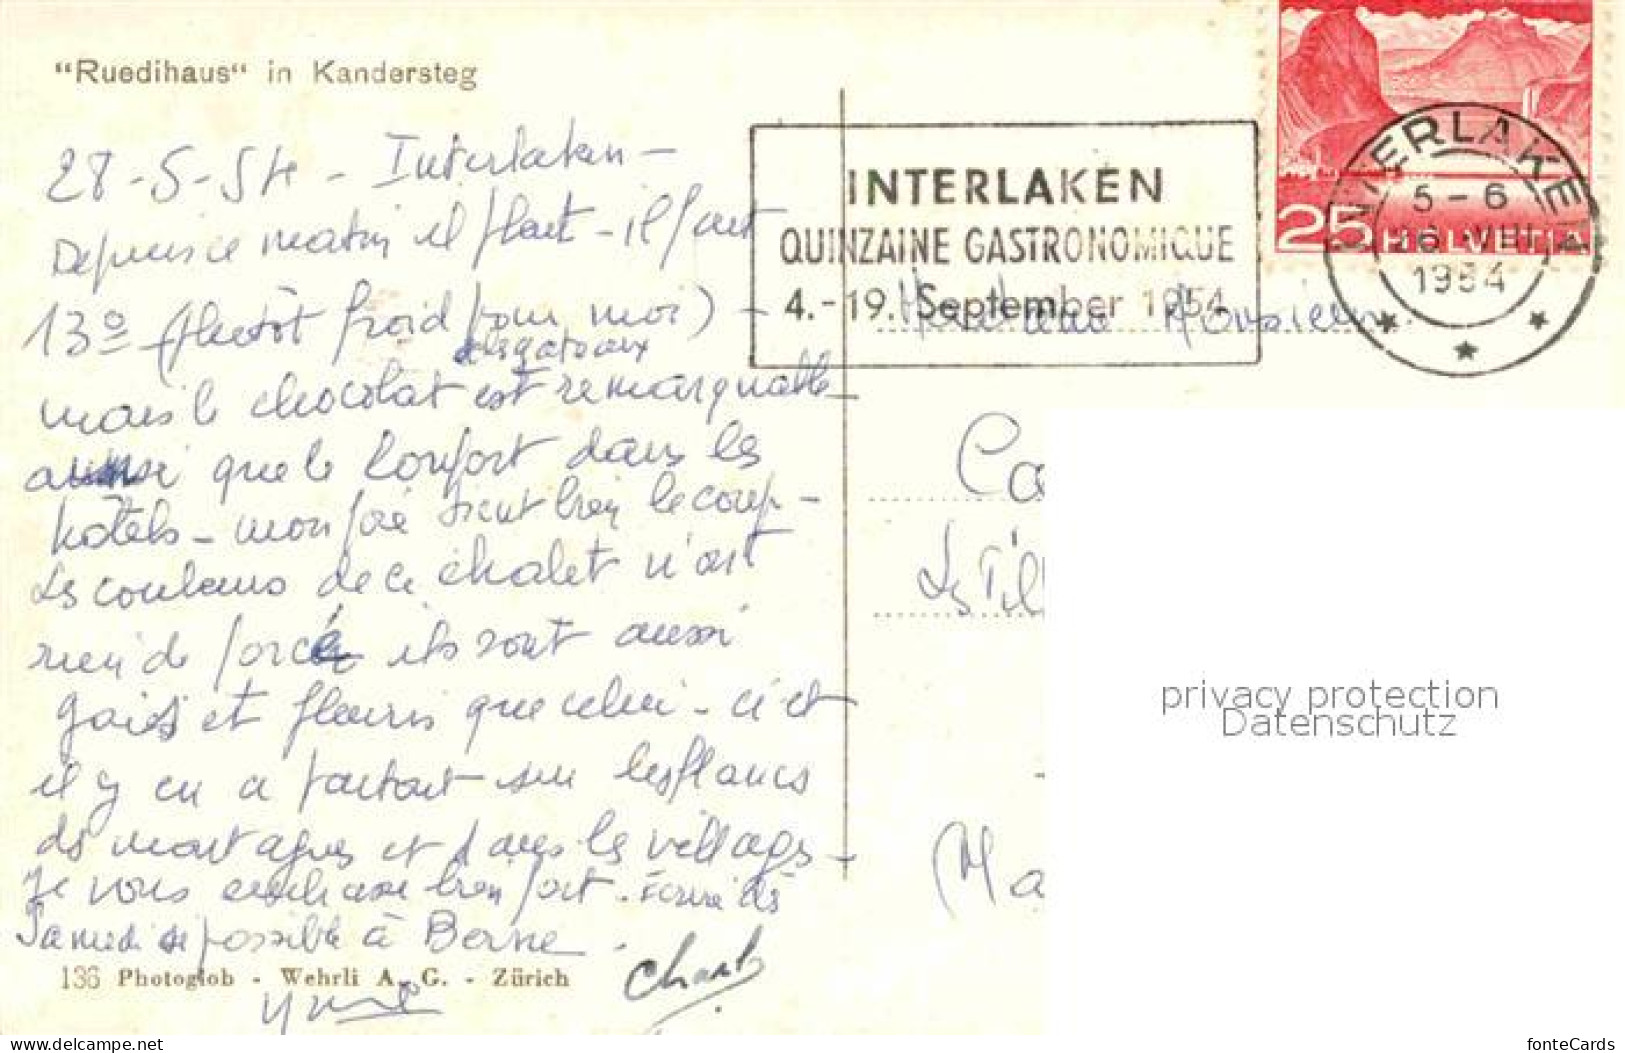 “Ruedihaus“ in Kandersteg
28-5-54 - Interlaken -
Depuis ce matin il pleut - il fait
13º (plutôt froid pour moi) -
des gateaux
mais le chocolat est remarquable
ainsi que le confort dans les
hotels - mon foie tient bien le coup -
Les couleurs de ce chalet n'ont
rien de forcé ils sont aussi
gais et fleuris que celui-ci et
il y en a partout sur les flancs
des montagnes et dans les villages -
Je vous embrasse bien fort. Écrire dès
Samedi si possible à Berne.
136 Photoglob - Wehrli A. G. - Zürich
INTERLAKEN
QUINZAINE GASTRONOMIQUE
4.-19. September 1954
25 HELVETIA
INTERLAKEN
5-6
VIII
1954
Monsieur
Ca
Les
Ma
privacy protection
Datenschutz
delcampe.net
fonteCards